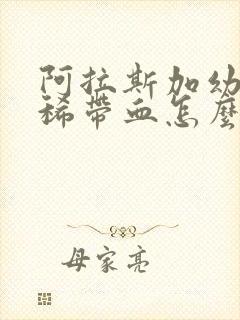 阿拉斯加幼
稀帶血怎麼
母家亮